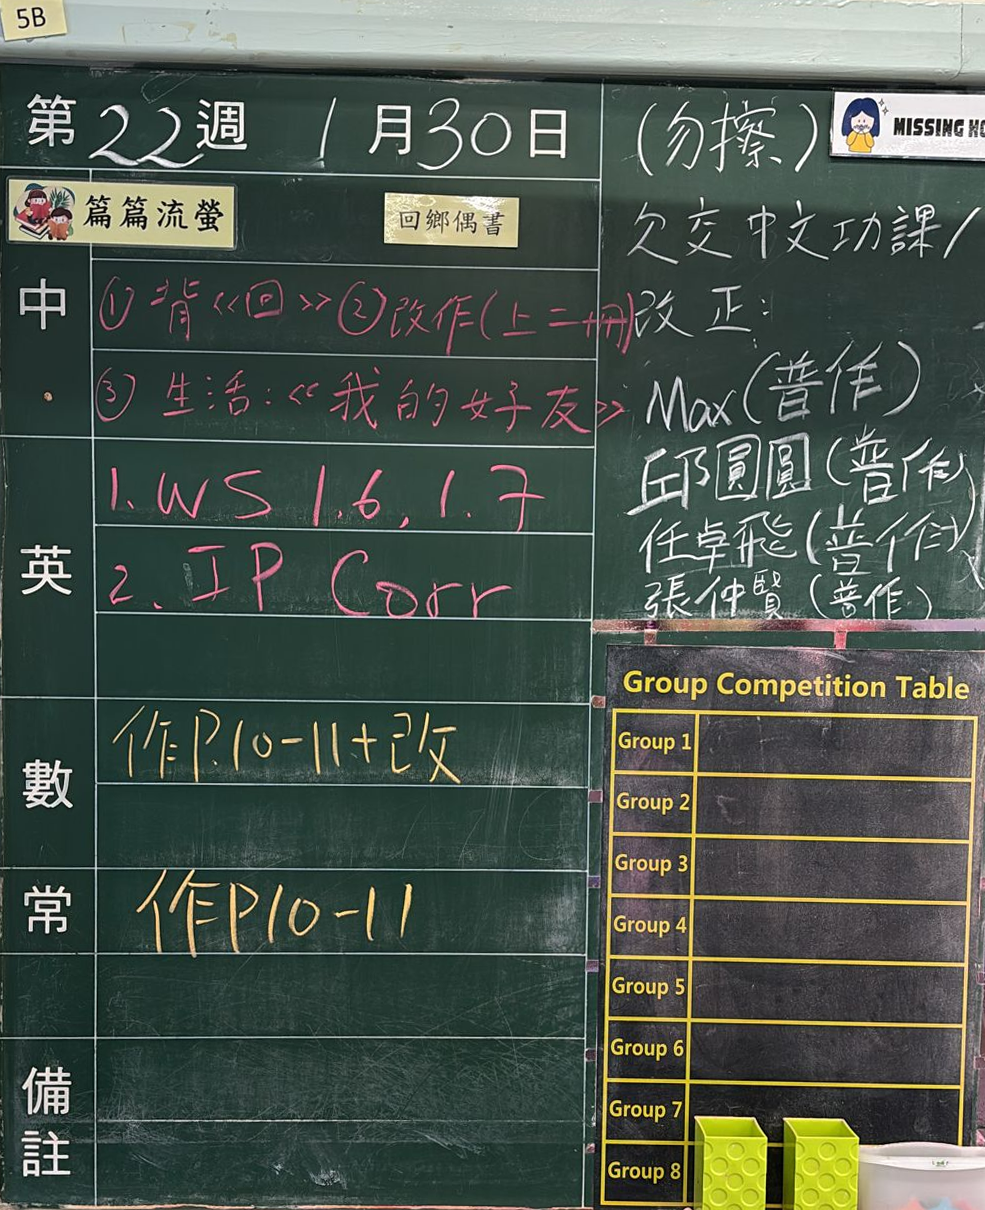 5B
第22週 1月30日
篇篇流螢 回鄉偶書
中
①背《回》②改作(上二冊)
③生活:《我的好子友》
英
1. WS 1.6, 1.7
2. IP Corr
數
作P.10-11+改
常
作P10-11
備註
(勿擦)
MISSING
欠交中文功課/
改正:
Max(普作)
邱圓圓(普作)
任卓飛(普作)
張仲賢(普作)
Group Competition Table
Group 1
Group 2
Group 3
Group 4
Group 5
Group 6
Group 7
Group 8